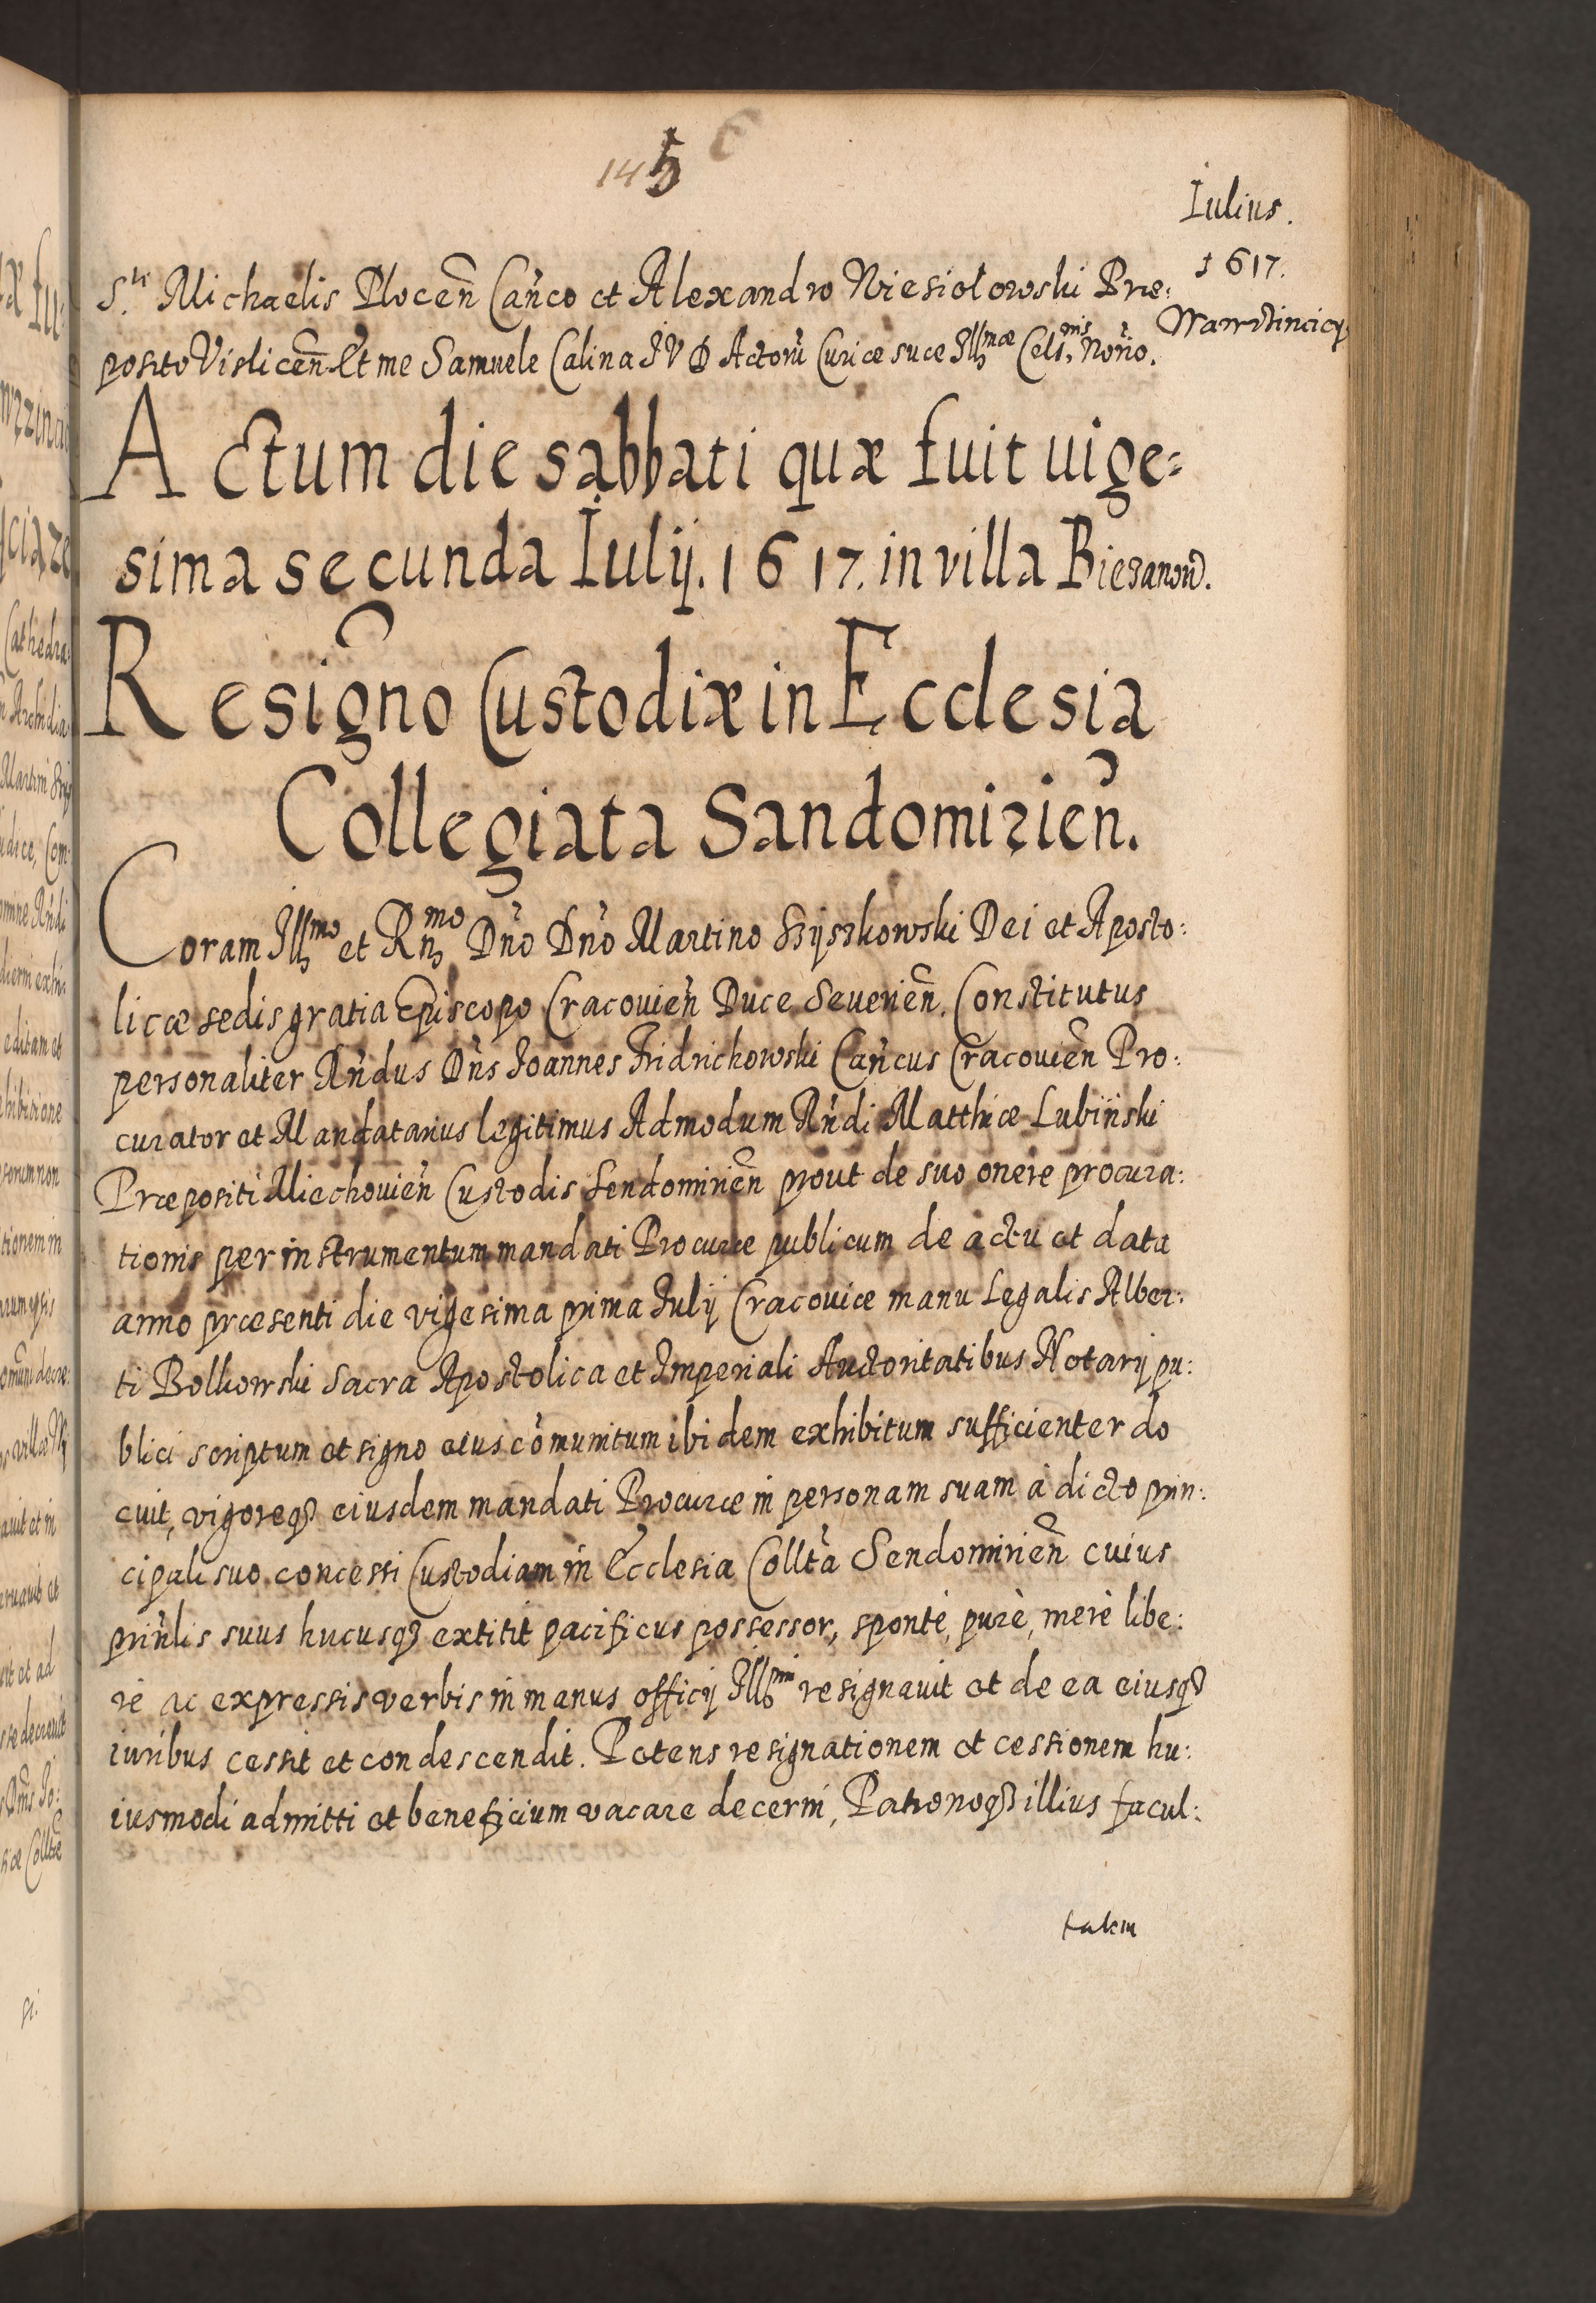 145
Iulius.
1617.
S.ti Michaelis Plocen̄ Can̄co et Alexandro Niesiołowski Præ:
posito Vislicen̄ Et me Samuele Calina I V D Actorū Curiæ suæ Illmæ Cels.nis Norio.
Actum die sabbati quæ fuit uige=
sima secunda Iulij. 1617. in villa Biezanow.
Resigno Custodiæ in Ecclesia
Collegiata Sandomirien̄.
Coram Illmo et Rmo Dn̄o Dn̄o Martino Szyszkowski Dei et Aposto:
licæ sedis gratia Episcopo Cracouien̄ Duce Seuerien̄. Constitutus
personaliter Rn̄dus Dn̄s Joannes Fridrichowski Can̄cus Cracouien̄ Pro:
curator et Mandatarius legitimus Admodum Rn̄di Matthiæ Lubiński
Præpositi Miechouien̄ Custodis Sendomirien̄ prout de suo onere procura:
tionis per instrumentum mandati Procuræ publicum de actu et data
anno præsenti die vigesima prima Iulij Cracouiæ manu Legalis Alber:
ti Bolkowski Sacra Apostolica et Imperiali Auctoritatibus Notarij pu:
blici scriptum et signo eius cōmunitum ibidem exhibitum sufficienter do
cuit, vigoreqȝ eiusdem mandati Procuræ in personam suam à dicto prin:
cipali suo concessi Custodiam in Ecclesia Collta Sendomirien̄ cuius
prin̄lis suus hucusqȝ extitit pacificus possessor, spontè, purè, merè libe:
rè ac expressis verbis in manus officij Illmi resignauit et de ea eiusqȝ
iuribus cessit et condescendit. Petens resignationem et cessionem hu:
iusmodi admitti et beneficium vacare decerni, Patronoqȝ illius facul:
tatem